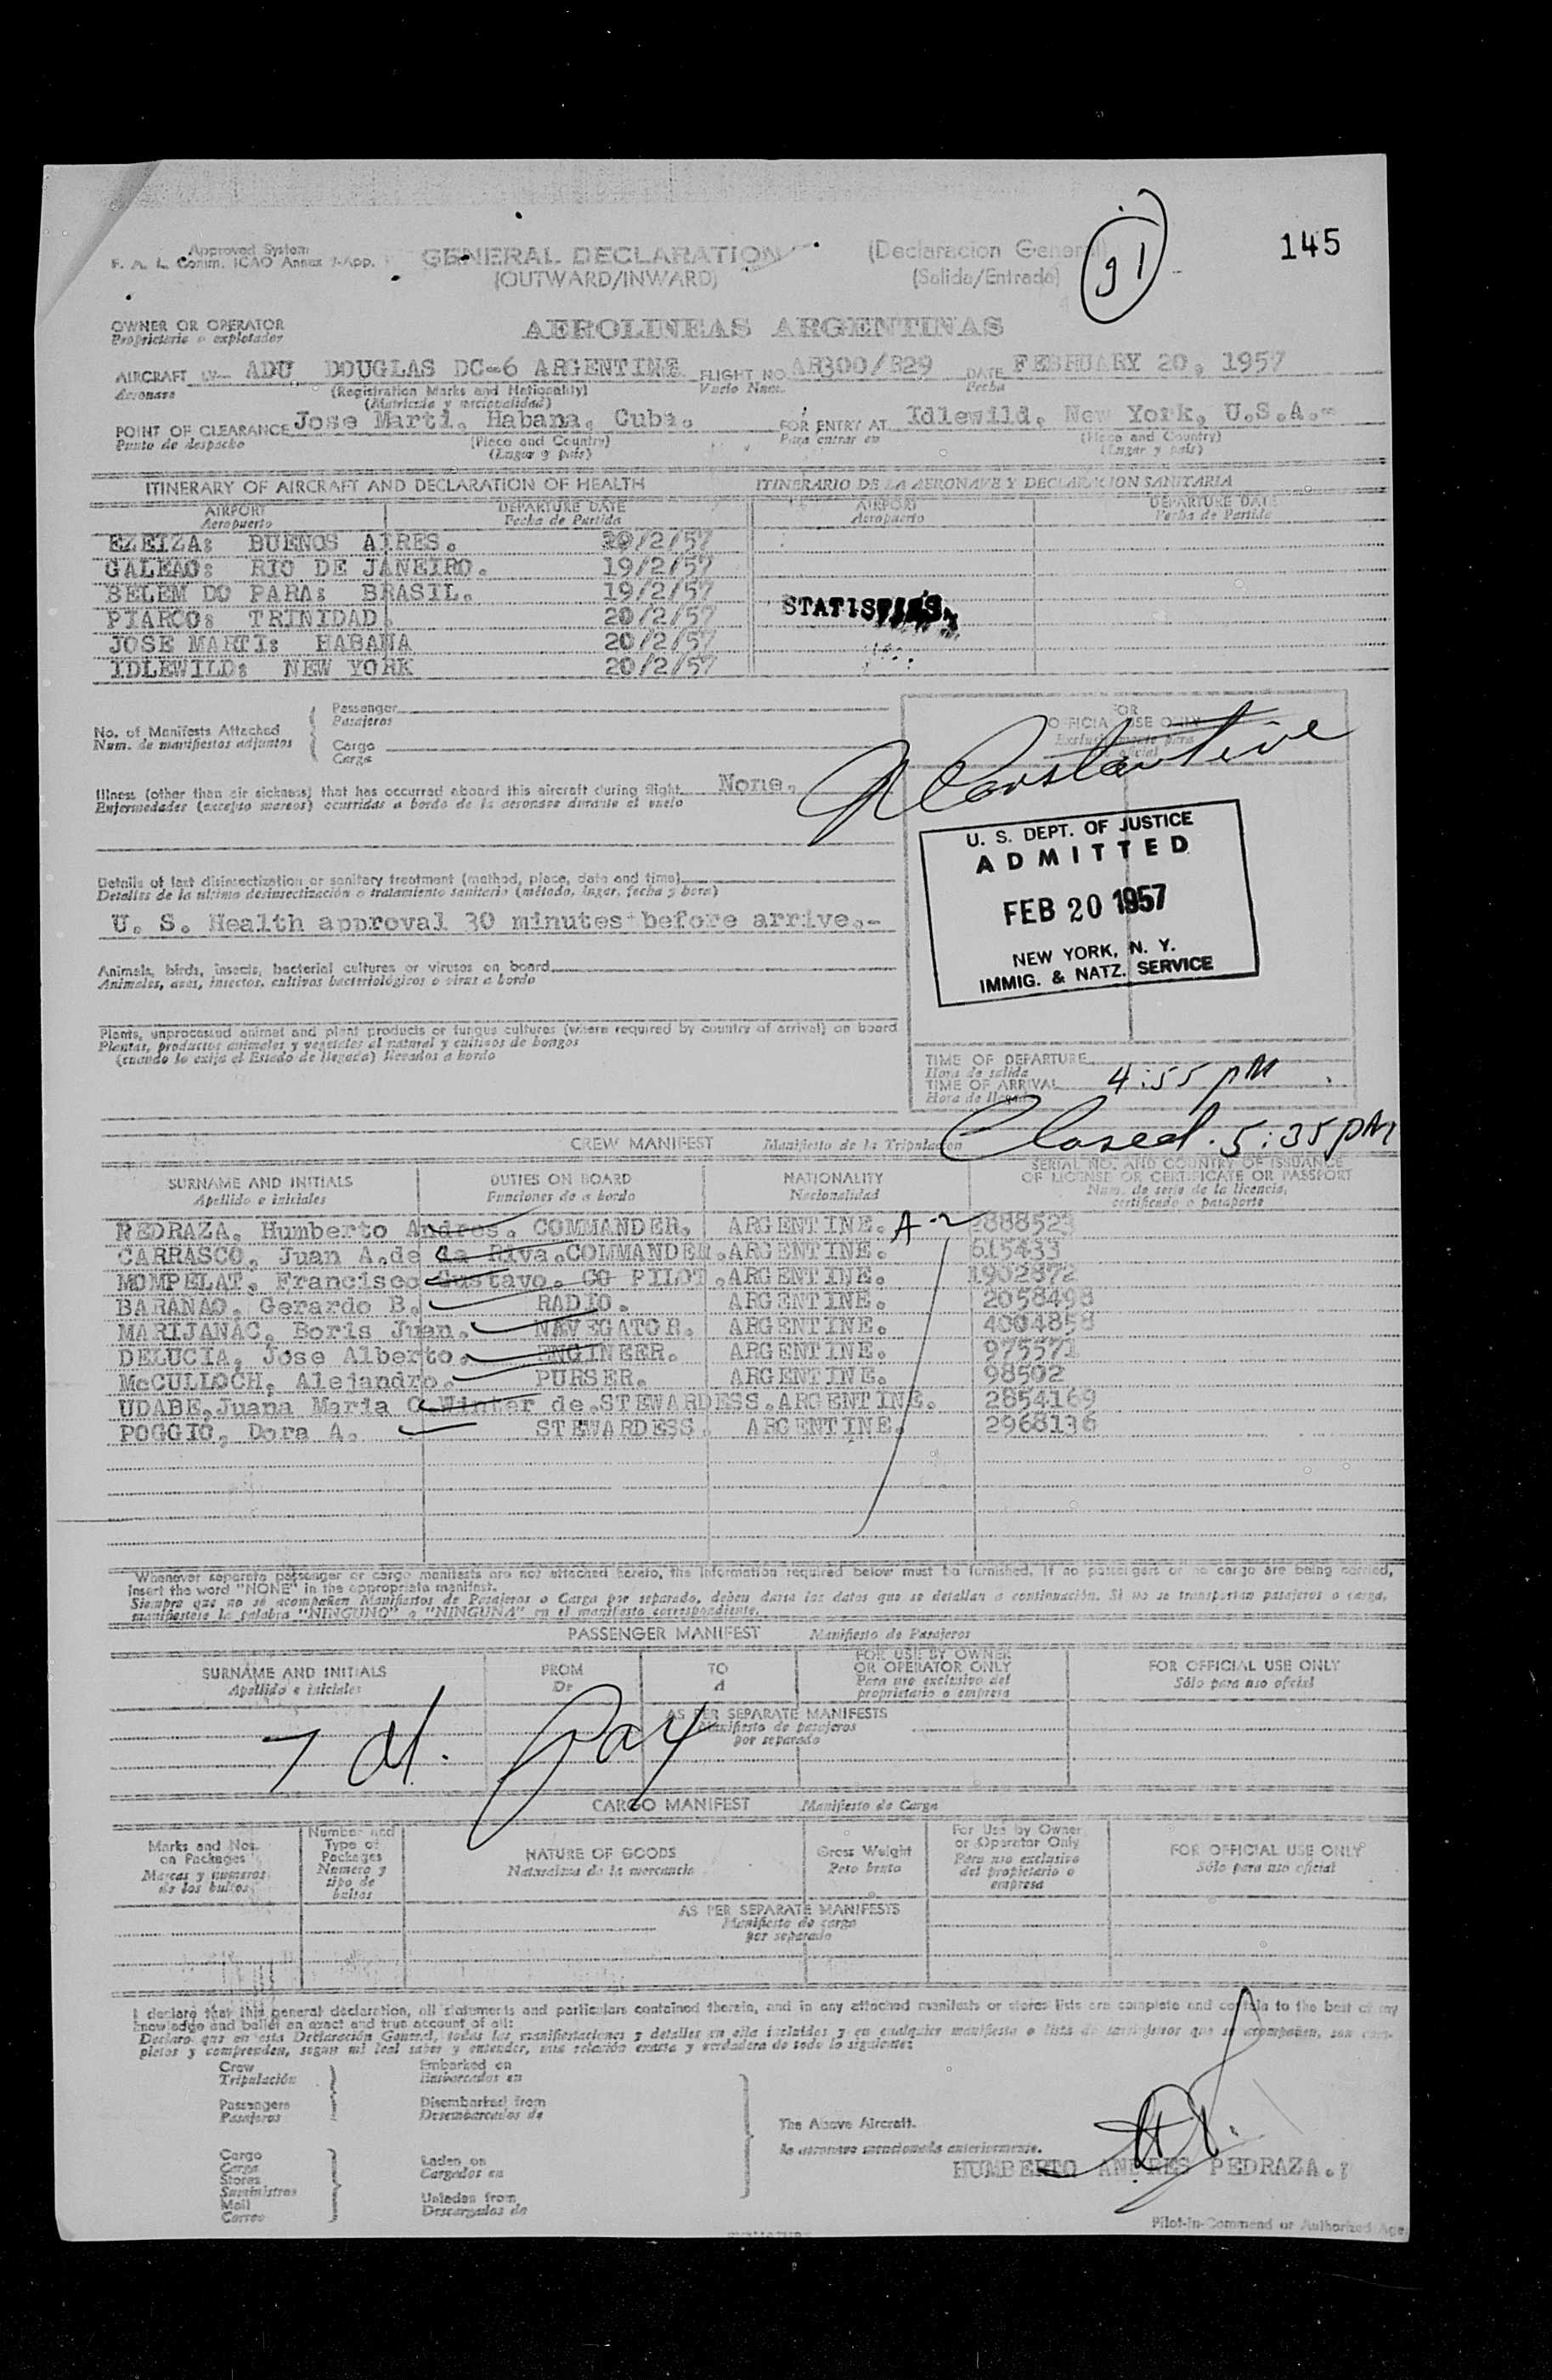 145
91
Approved System
F. A. L. Comm. ICAO Annex 9-App.
GENERAL DECLARATION
(OUTWARD/INWARD)
(Declaracion General)
(Salida/Entrada)
OWNER OR OPERATOR
Proprietario o explotador
AEROLINEAS ARGENTINAS
AIRCRAFT LV- ADU DOUGLAS DC-6 ARGENTINE FLIGHT NO. AR300/829 DATE FEBRUARY 20, 1957
Aeronave (Registration Marks and Nationality) Vuelo Num. Fecha
(Matricula y nacionalidad)
POINT OF CLEARANCE Jose Marti. Habana. Cuba. FOR ENTRY AT Idlewild. New York, U.S.A.-
Punto de despacho (Place and Country) Para entrar en (Place and Country)
(Lugar y pais) (Lugar y pais)
ITINERARY OF AIRCRAFT AND DECLARATION OF HEALTH ITINERARIO DE LA AERONAVE Y DECLARACION SANITARIA
AIRPORT DEPARTURE DATE AIRPORT DEPARTURE DATE
Aeropuerto Fecha de Partida Aeropuerto Fecha de Partida
EZEIZA: BUENOS AIRES. /2/57
GALEAO: RIO DE JANEIRO. 19/2/57
BELEM DO PARA: BRASIL. 19/2/57
PIARCO: TRINIDAD 20/2/57
JOSE MARTI: HABANA 20/2/57
IDLEWILD: NEW YORK 20/2/57
STATISTICS
No. of Manifests Attached
Num. de manifiestos adjuntos
Passenger
Pasajeros
Cargo
Carga
FOR
OFFICIAL USE ONLY
Exclusivamente para
oficial
N Constantine
Illness (other than air sickness) that has occurred aboard this aircraft during flight None.
Enfermedades (excepto mareos) ocurridas a bordo de la aeronave durante el vuelo
U. S. DEPT. OF JUSTICE
ADMITTED
FEB 20 1957
NEW YORK, N. Y.
IMMIG. & NATZ. SERVICE
Details of last disinsectization or sanitary treatment (method, place, date and time)
Detalles de la ultima desinsectización o tratamiento sanitario (método, lugar, fecha y hora)
U. S. Health approval 30 minutes before arrive.-
Animals, birds, insects, bacterial cultures or viruses on board
Animales, aves, insectos, cultivos bacteriológicos o virus a bordo
Plants, unprocessed animal and plant products or fungus cultures (where required by country of arrival) on board
Plantas, productos animales y vegetales al natural y cultivos de hongos
(cuando lo exija el Estado de llegada) llevados a bordo
TIME OF DEPARTURE
Hora de salida
TIME OF ARRIVAL 4:55 PM
Hora de llegada
Closed. 5:35 PM
CREW MANIFEST Manifiesto de la Tripulacion
SURNAME AND INITIALS DUTIES ON BOARD NATIONALITY SERIAL NO. AND COUNTRY OF ISSUANCE
Apellido e iniciales Funciones de a bordo Nacionalidad OF LICENSE OR CERTIFICATE OR PASSPORT
Num. de serie de la licencia,
certificado o pasaporte
PEDRAZA, Humberto Andres. COMMANDER. ARGENTINE. A-2 888523
CARRASCO, Juan A.de la Riva.COMMANDER.ARGENTINE. 615433
MOMPELAT, Francisco Gustavo. CO PILOT.ARGENTINE. 1902872
BARANAO, Gerardo B. RADIO. ARGENTINE. 2058498
MARIJANAC, Boris Juan. NAVEGATOR. ARGENTINE. 4004858
DELUCIA, Jose Alberto. ENGINEER. ARGENTINE. 975571
McCULLOCH, Alejandro. PURSER. ARGENTINE. 98502
UDABE,Juana Maria C.Winter de.STEWARDESS.ARGENTINE. 2854169
POGGIO, Dora A. STEWARDESS. ARGENTINE. 2968136
Whenever separate passenger or cargo manifests are not attached hereto, the information required below must be furnished. If no passengers or no cargo are being carried,
insert the word "NONE" in the appropriate manifest.
Siempre que no se acompañen Manifiestos de Pasajeros o Carga por separado, deben darse los datos que se detallan a continuación. Si no se transportan pasajeros o carga,
manifiestese la palabra "NINGUNO" o "NINGUNA" en el manifiesto correspondiente.
PASSENGER MANIFEST Manifiesto de Pasajeros
SURNAME AND INITIALS FROM TO FOR USE BY OWNER FOR OFFICIAL USE ONLY
Apellido e iniciales De A OR OPERATOR ONLY Sólo para uso oficial
Para uso exclusivo del
proprietario o empresa
AS PER SEPARATE MANIFESTS
Manifiesto de pasajeros
por separado
7 d. pax
CARGO MANIFEST Manifiesto de Carga
Marks and Nos. on Packages
Marcas y numeros de los bultos
Number and Type of Packages
Numero y tipo de bultos
NATURE OF GOODS
Naturaleza de la mercancia
Gross Weight
Peso bruto
For Use by Owner or Operator Only
Para uso exclusivo del propietario o empresa
FOR OFFICIAL USE ONLY
Sólo para uso oficial
AS PER SEPARATE MANIFESTS
Manifiesto de carga
por separado
I declare that this general declaration, all statements and particulars contained therein, and in any attached manifests or stores lists are complete and contain to the best of my
knowledge and belief an exact and true account of all:
Declaro que en esta Declaración General, todas las manifestaciones y detalles en ella incluidos y en cualquier manifiesto o lista de suministros que se acompañen, son com-
pletos y comprenden, segun mi leal saber y entender, una relación exacta y verdadera de todo lo siguiente:
Crew Embarked on
Tripulación Embarcados en
Passengers Disembarked from
Pasajeros Desembarcados de
The Above Aircraft.
la aeronave mencionada anteriormente.
Cargo
Carga Laden on
Stores Cargados en
Suministros
Mail Unladen from
Correo Descargados de
HUMBERTO ANDRES PEDRAZA.
Pilot-in-Command or Authorized Age